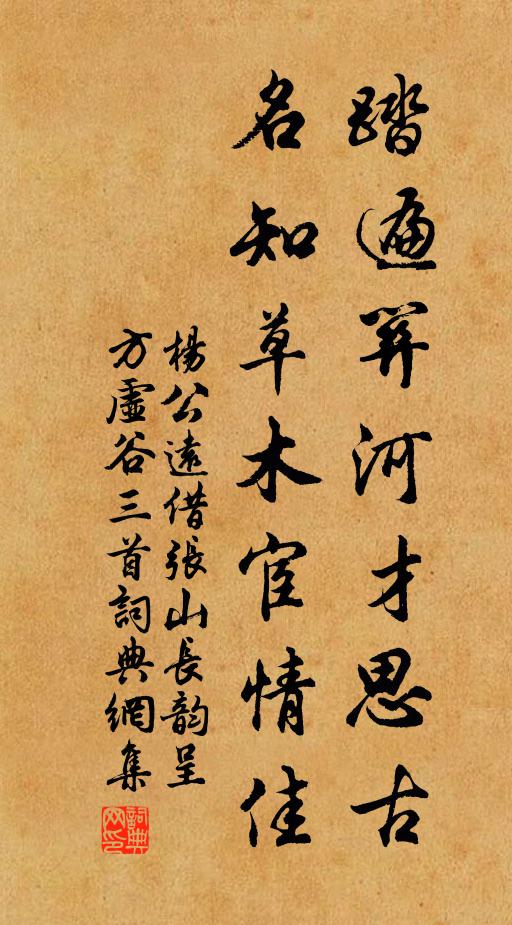 踏遍關河才思古
名知草木宦情佳
楊公遠借張山長韵呈
方虛谷三首詞典網集
詞典网印